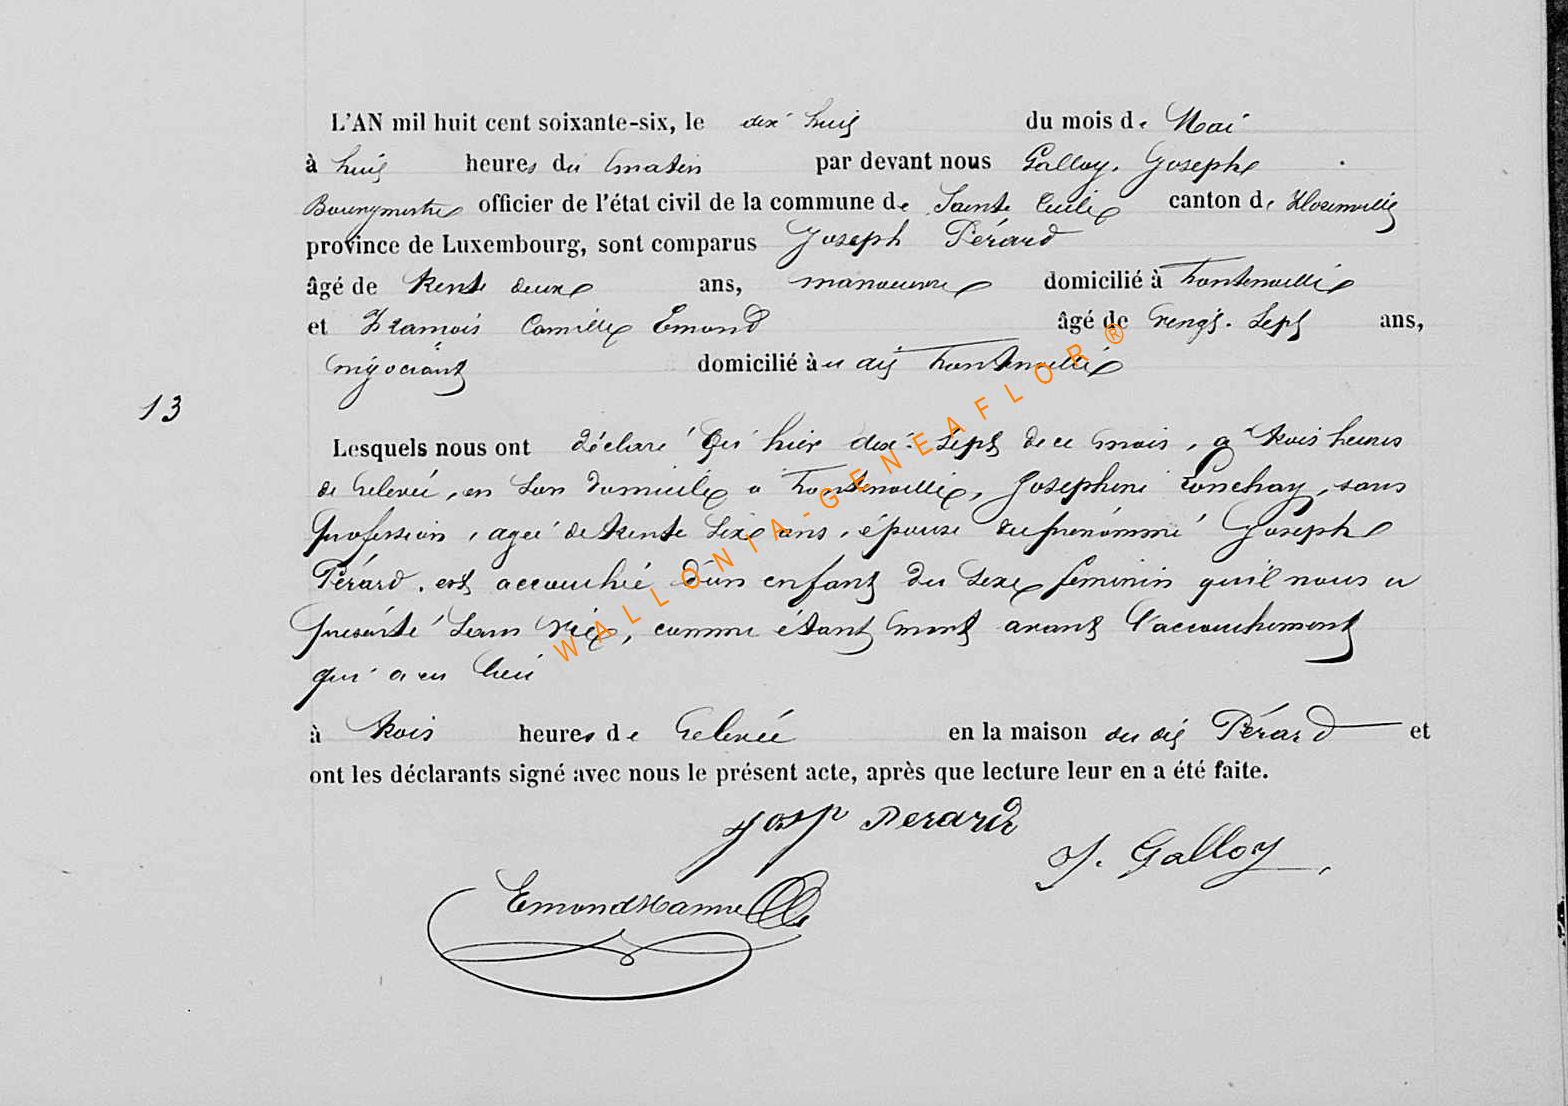 L'AN mil huit cent soixante-six, le dix huit du mois de Mai
à huit heures du matin par devant nous Galloy, Joseph
Bourgmestre officier de l'état civil de la commune de Sainte Cécile canton de Florenville
province de Luxembourg, sont comparus Joseph Pérard
âgé de trente deux ans, manoeuvre domicilié à Fontenoille
et François Camille Emond âgé de vingt-sept ans,
négociant domicilié à u dit Fontenoille
13
Lesquels nous ont déclaré qu'hier dix-sept de ce mois, à trois heures
de relevée, en son domicile à Fontenoille, Joséphine Conchay, sans
profession, agée de trente six ans, épouse du prénommé Joseph
Pérard, est accouchée d'un enfant du sexe féminin qu'il nous a
présenté sans vie, comme étant mort avant l'accouchement
qui a eu lieu
à trois heures de relevée en la maison du dit Pérard et
ont les déclarants signé avec nous le présent acte, après que lecture leur en a été faite.
Josp Perard
J. Galloy
Emond
WALLONIA-GENEAFLOR®